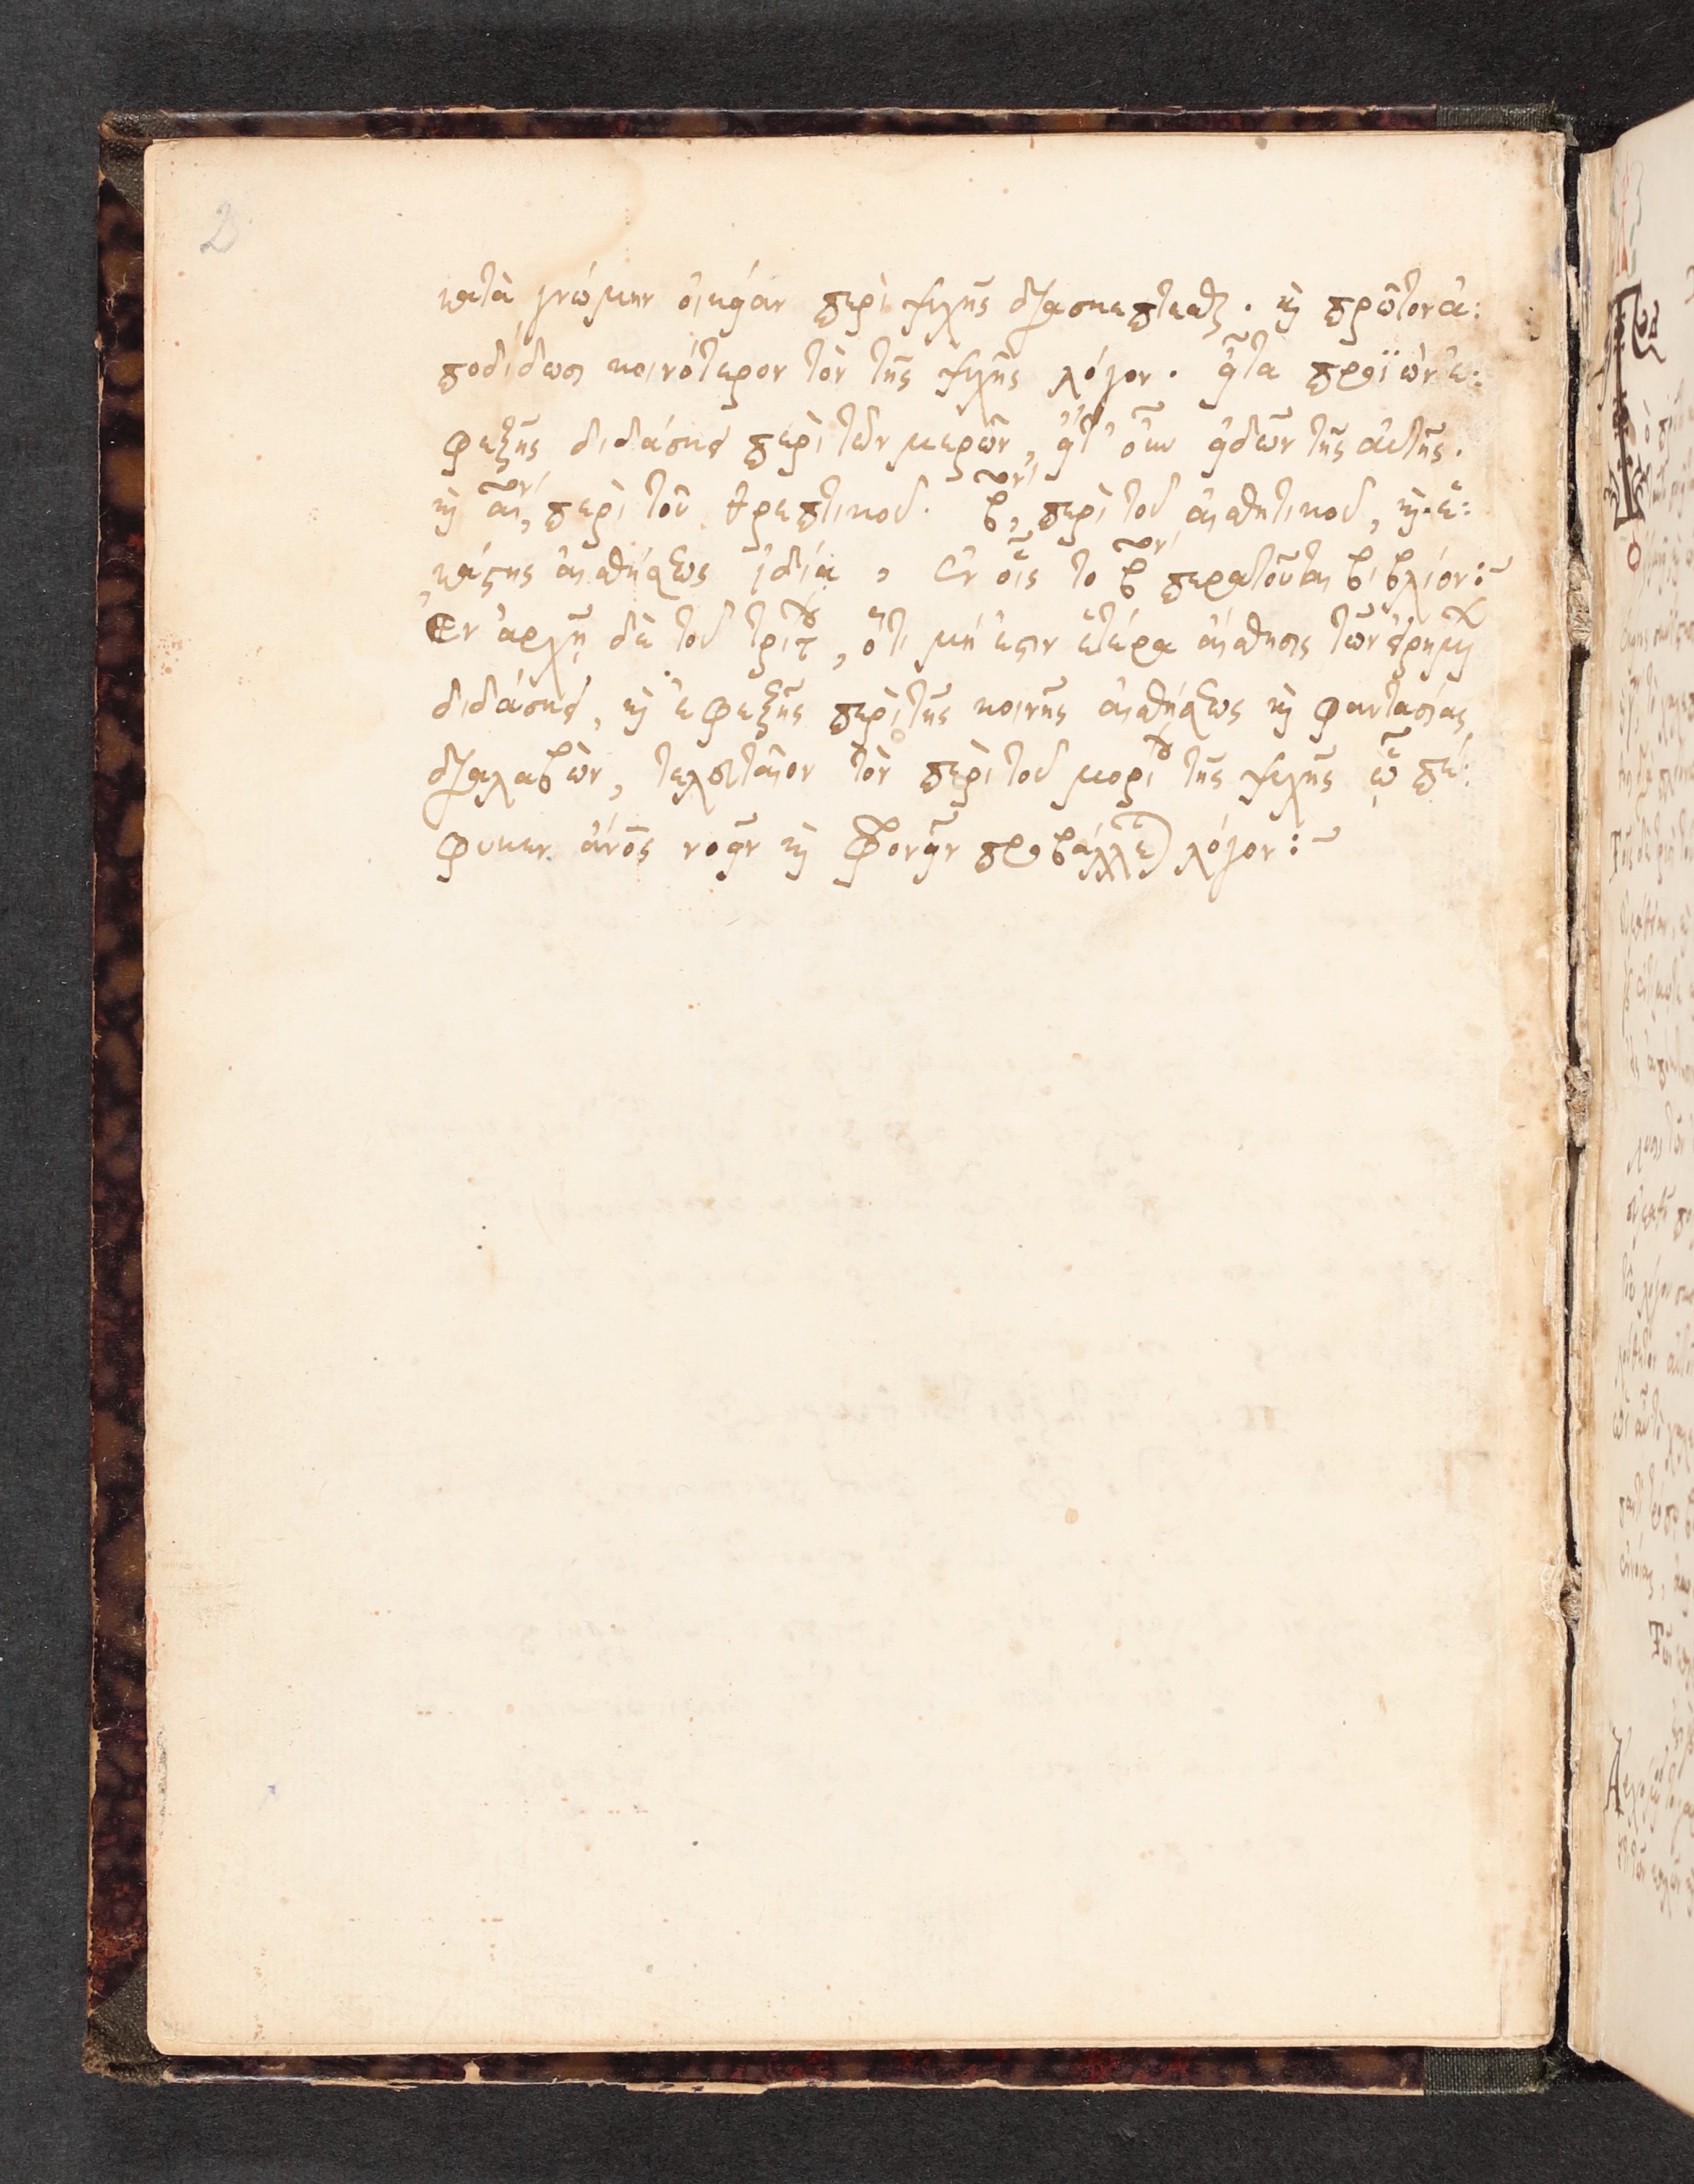 2
κατὰ γνώμην οἰκείαν περὶ ψυχῆς διασκεπτεαι. καὶ πρῶτον ἀ:
ποδίδωσι κοινότερον τὸν τῆς ψυχῆς λόγον. εἶτα προϊὼν ἐ:
φεξῆς διδάσκει περὶ τῶν μερῶν, εἴτ' οὖν εἰδῶν τῆς αὐτῆς.
καὶ αον, περὶ τοῦ θρεπτικοῦ. βον, περὶ τοῦ αἰσθητικοῦ, καὶ ἑ:
κάστης αἰσθήσεως ἰδίᾳ, ἐν οἷς το βον περατοῦται βιβλίον:~
Ἐν ἀρχῇ δὲ τοῦ τρίτου, ὅτι μή ἐστιν ἑτέρα αἴσθησις τῶν εἰρημένων
διδάσκει, καὶ ἐφεξῆς περὶ τῆς κοινῆς αἰσθήσεως καὶ φαντασίας
διαλαβὼν, τελευταῖον τὸν περὶ τοῦ μορίου τῆς ψυχῆς ᾧ πέ:
φυκεν ἄνος νοεῖν καὶ φρονεῖν προβάλλεται λόγον:~